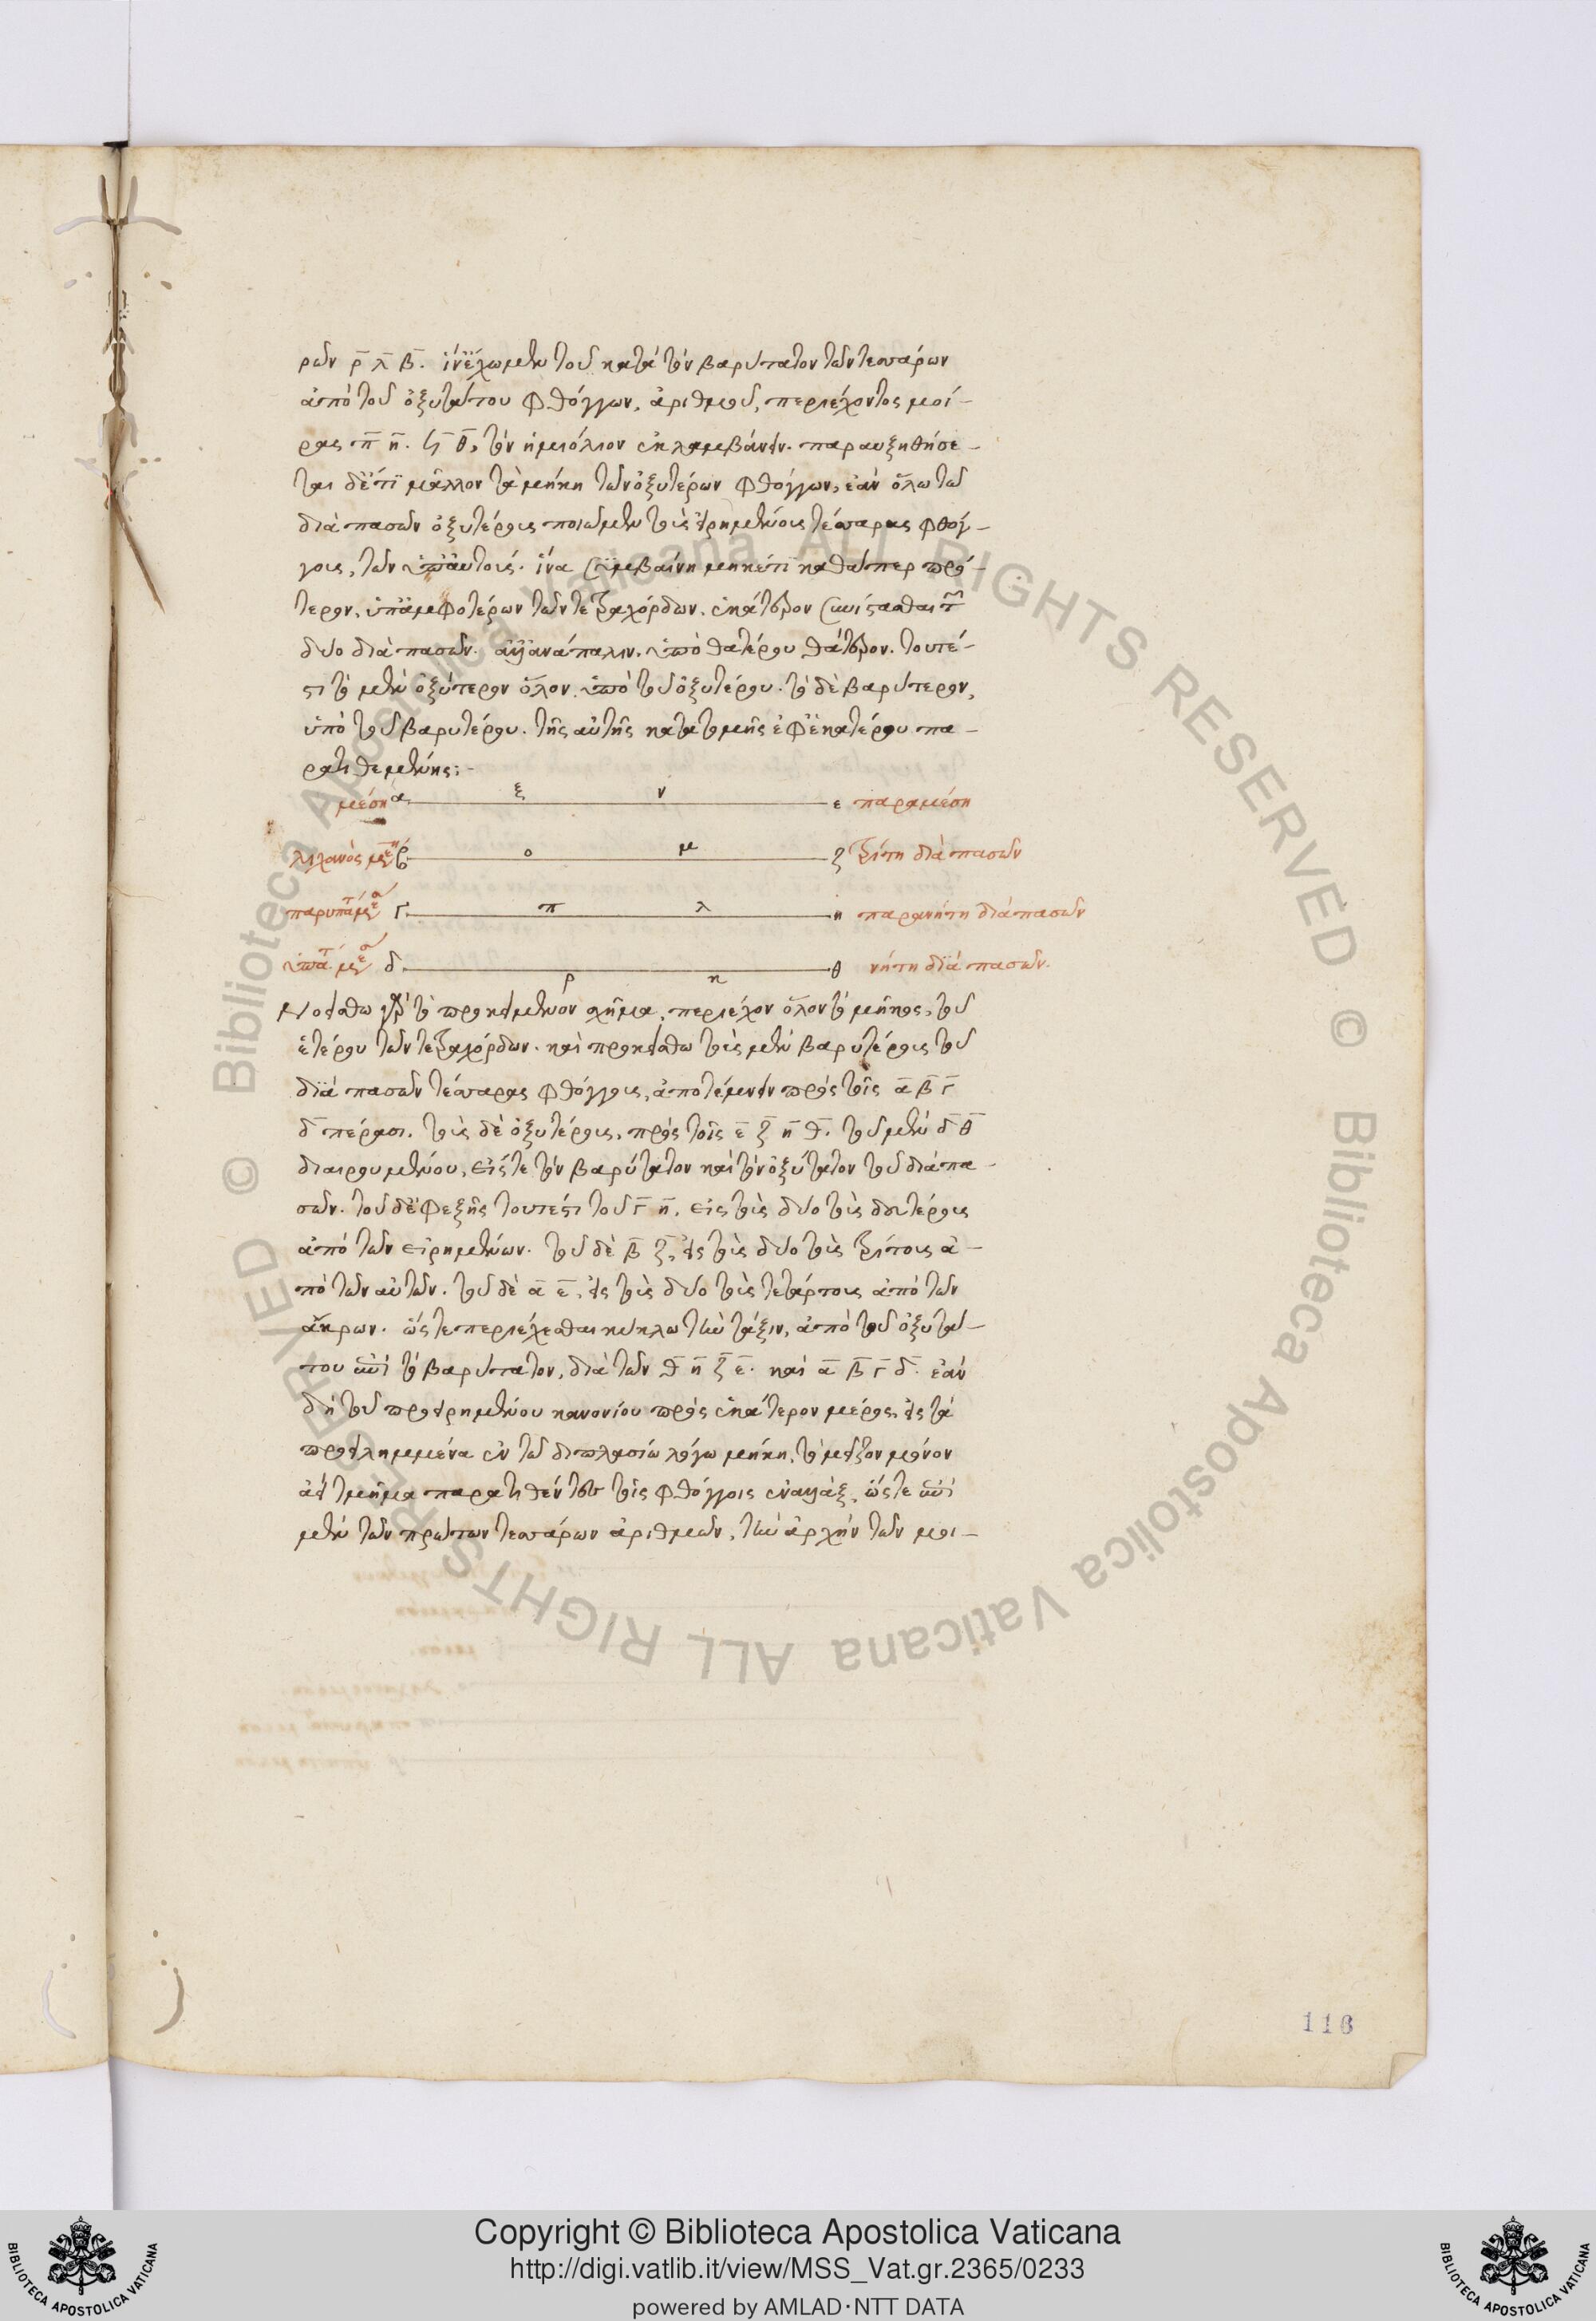 ρῶν ρ̅ λ̅ β̅. ἵν' ἔχωμεν τοῦ κατὰ τὸν βαρύτατον τῶν τεσσάρων
ἀπὸ τοῦ ὀξυτάτου φθόγγων, ἀριθμοῦ, περιέχοντος μοί-
ρας π̅ η̅. τὸν ἡμιόλιον ἐκλαμβάνειν. παραυξηθήσε-
ται δ' ἔτι μᾶλλον τὰ μήκη τῶν ὀξυτέρων φθόγγων, ἐὰν ὅλω τῶ
διὰ πασῶν ὀξυτέρους ποιῶμεν τοὺς εἰρημένους τέσσαρας φθόγ-
γους, τῶν ὑπ' αὐτούς. ἵνα συμβαίνη μηκέτι καθάπερ πρό-
τερον, ὑπ' ἀμφοτέρων τῶν τετραχόρδων, ἑκάτερον συνίστασθαι τῶν
δύο διὰ πασῶν. ἀλλ' ἀνάπαλιν, ὑπὸ θατέρου θάτερον. τουτέ-
στι τὸ μὲν ὀξύτερον ὅλον, ὑπὸ τοῦ ὀξυτέρου. τὸ δὲ βαρύτερον,
ὑπὸ τοῦ βαρυτέρου. τῆς αὐτῆς κατατομῆς ἐφ' ἑκατέρου πα-
ρατιθεμένης:-
μέση α ξ ν ε παραμέση
λιχανὸς μέσων β ο μ ζ τρίτη διὰ πασῶν
παρυπάτη μέσων Γ π λ η παρανήτη διὰ πασῶν
ὑπάτη μέσων δ ρ κ θ νήτη διὰ πασῶν.
Νοείσθω γὰρ τὸ προκείμενον σχῆμα, περιέχον ὅλον τὸ μῆκος, τοῦ
ἑτέρου τῶν τετραχόρδων. καὶ προκείσθω τοὺς μὲν βαρυτέρους τοῦ
διὰ πασῶν τέσσαρας φθόγγους, ἀποτέμνειν πρὸς τοῖς α̅ β̅ Γ̅
δ̅ πέρασι. τοὺς δὲ ὀξυτέρους, πρὸς τοῖς ε̅ ζ̅ η̅ θ̅. τοῦ μὲν δ̅ θ̅
διαιρουμένου, εἴς τε τὸν βαρύτατον καὶ τὸν ὀξύτατον τοῦ διὰ πα-
σῶν. τοῦ δ' ἐφεξῆς τουτέστι τοῦ Γ̅ η̅, εἰς τοὺς δύο τοὺς δευτέρους
ἀπὸ τῶν εἰρημένων. τοῦ δὲ β̅ ζ̅, εἰς τοὺς δύο τοὺς τρίτους ἀ-
πὸ τῶν αὐτῶν. τοῦ δὲ α̅ ε̅, εἰς τοὺς δύο τοὺς τετάρτους ἀπὸ τῶν
ἄκρων. ὥστε περιέχεσθαι κύκλω τὴν τάξιν, ἀπὸ τοῦ ὀξυτά-
του ἐπὶ τὸ βαρύτατον, διὰ τῶν θ̅ η̅ ζ̅ ε̅. καὶ α̅ β̅ Γ̅ δ̅. ἐὰν
δὴ τοῦ προειρημένου κανονίου πρὸς ἑκάτερον μέρος, εἰς τὰ
προειλημμένα ἐν τῶ διπλασίω λόγω μήκη, τὸ μεῖζον μόνον
ἀεὶ τμῆμα παρατιθέντες τοῖς φθόγγοις ἐναλλὰξ, ὥστε ἐπὶ
μὲν τῶν πρώτων τεσσάρων ἀριθμῶν, τὴν ἀρχὴν τῶν μοι-
116
Copyright © Biblioteca Apostolica Vaticana
http://digi.vatlib.it/view/MSS_Vat.gr.2365/0233
powered by AMLAD·NTT DATA